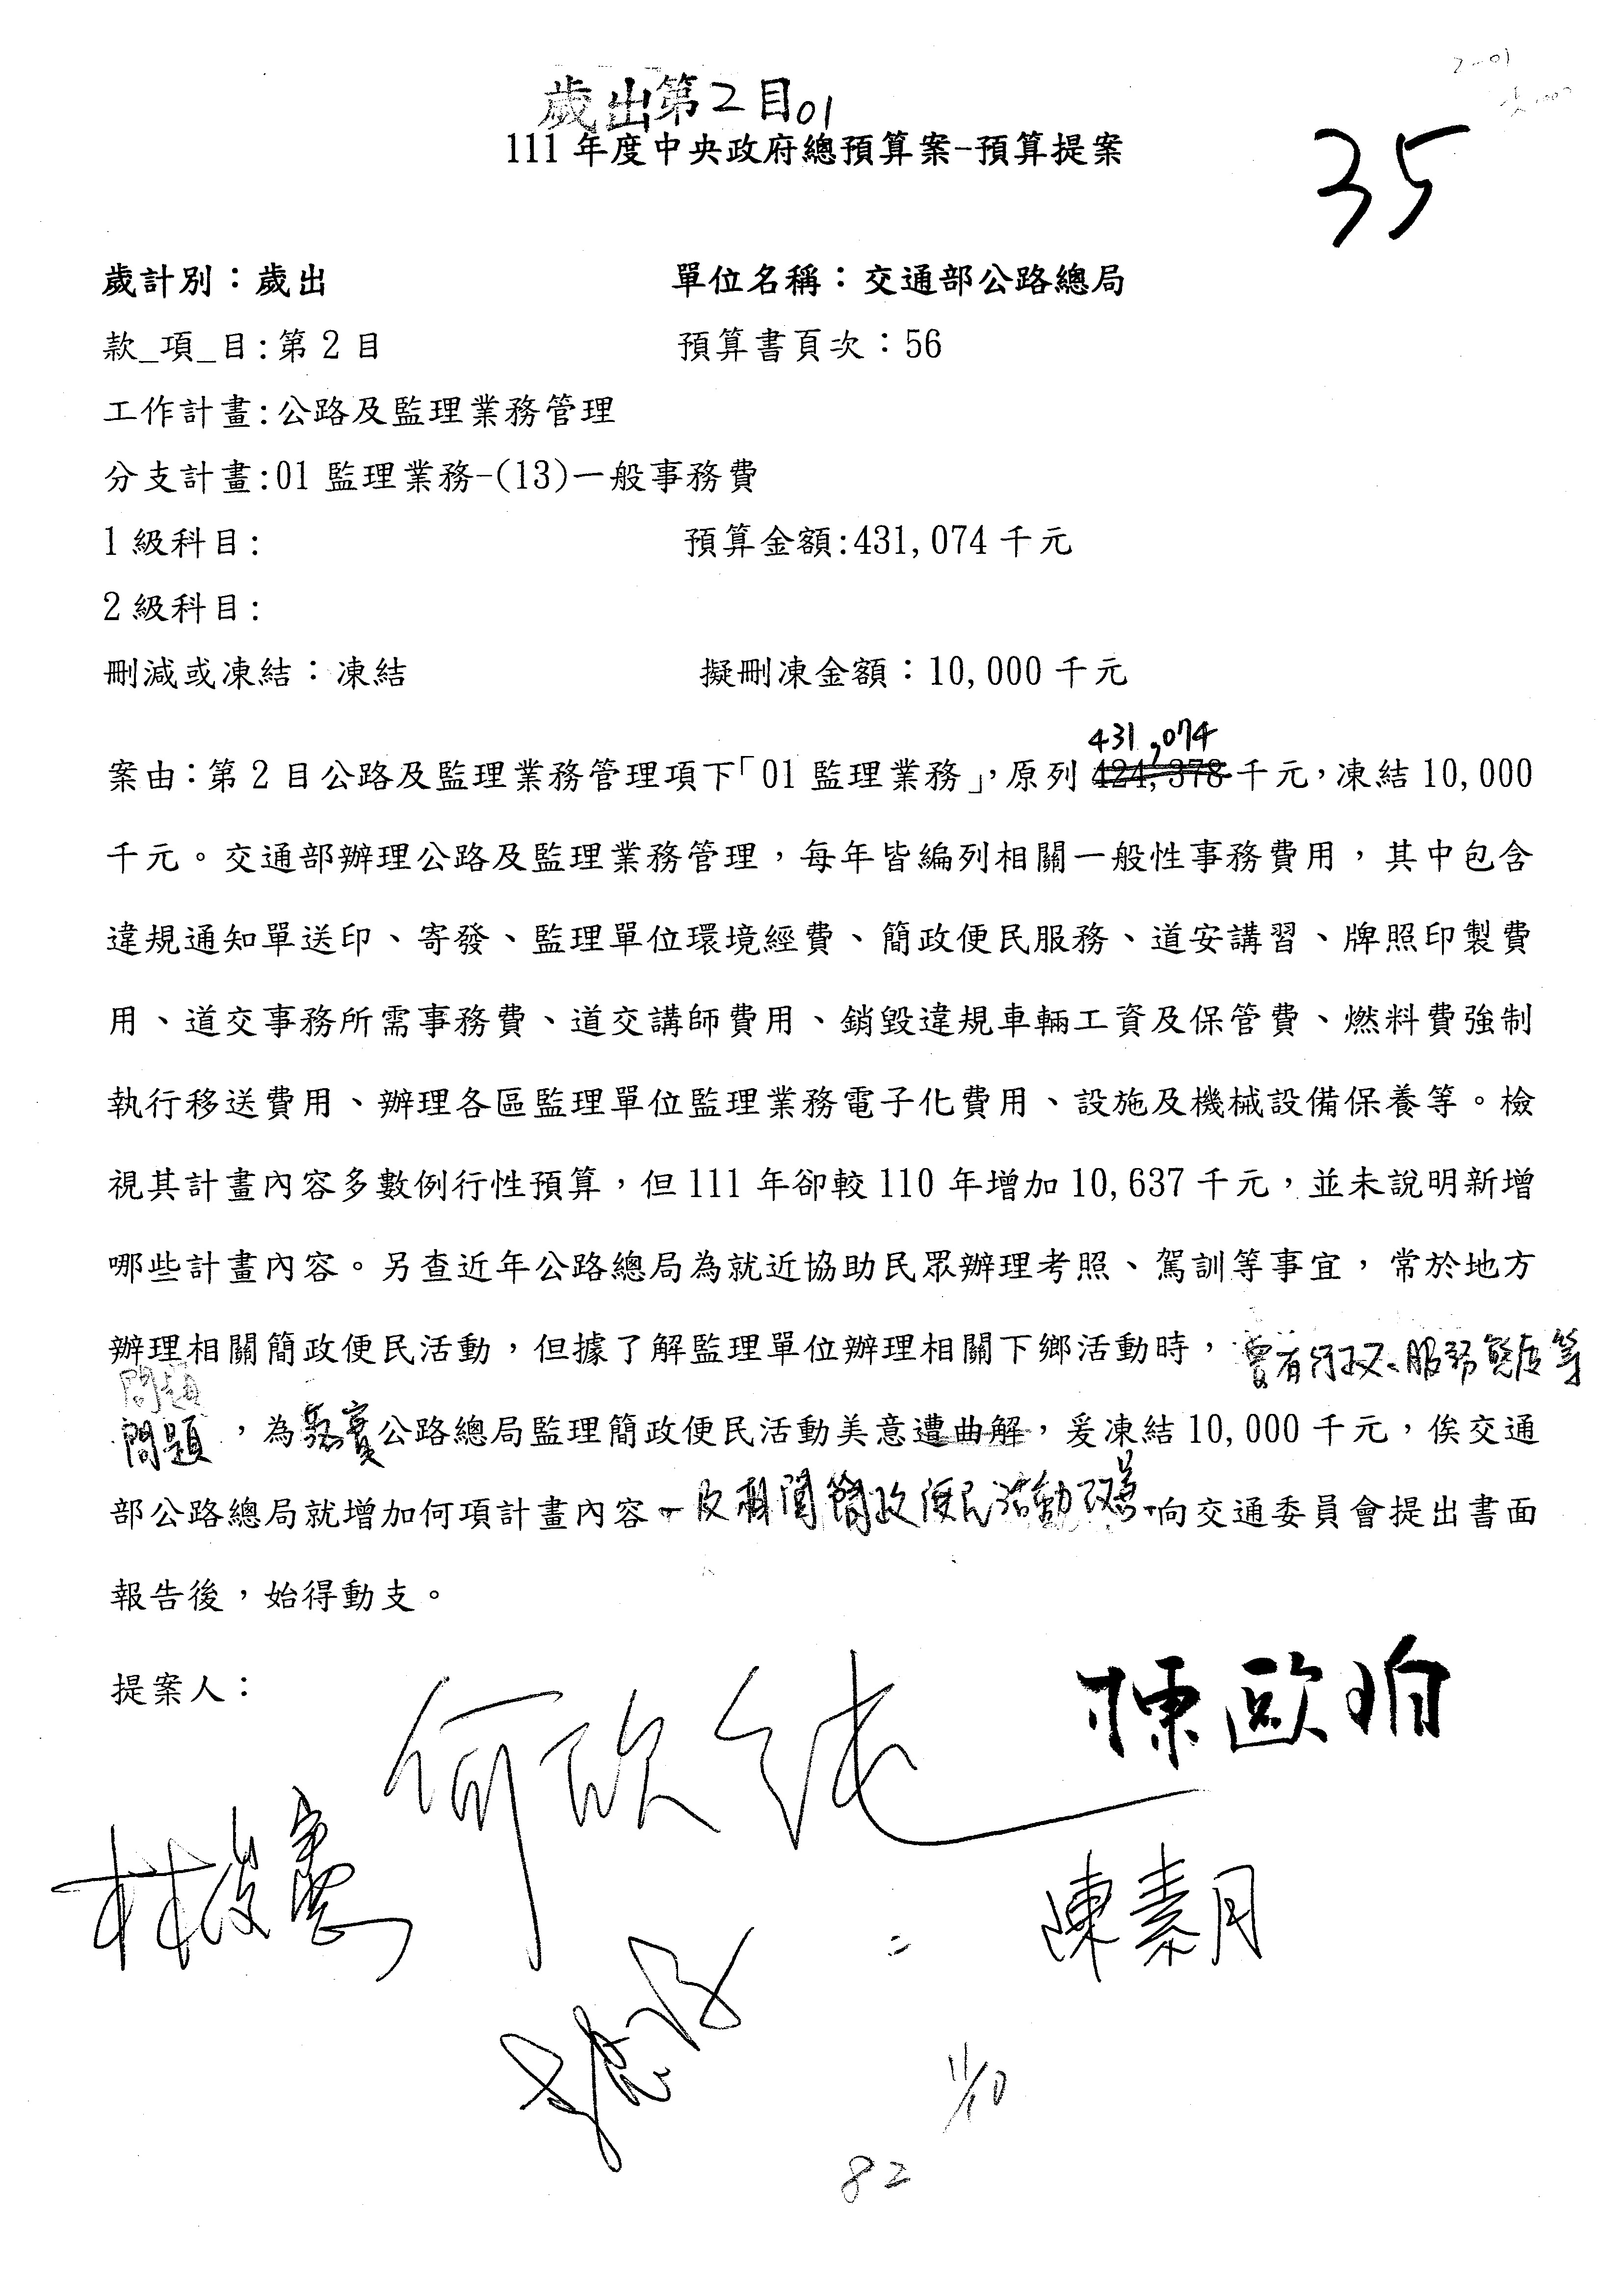 2-01
歲出第2目01
111年度中央政府總預算案-預算提案
35
歲計別：歲出 單位名稱：交通部公路總局
款_項_目:第2目 預算書頁次：56
工作計畫:公路及監理業務管理
分支計畫:01監理業務-(13)一般事務費
1級科目: 預算金額:431,074千元
2級科目:
刪減或凍結：凍結 擬刪凍金額：10,000千元
431,074
案由：第2目公路及監理業務管理項下「01監理業務」，原列424,378千元，凍結10,000
千元。交通部辦理公路及監理業務管理，每年皆編列相關一般性事務費用，其中包含
違規通知單送印、寄發、監理單位環境經費、簡政便民服務、道安講習、牌照印製費
用、道交事務所需事務費、道交講師費用、銷毀違規車輛工資及保管費、燃料費強制
執行移送費用、辦理各區監理單位監理業務電子化費用、設施及機械設備保養等。檢
視其計畫內容多數例行性預算，但111年卻較110年增加10,637千元，並未說明新增
哪些計畫內容。另查近年公路總局為就近協助民眾辦理考照、駕訓等事宜，常於地方
辦理相關簡政便民活動，但據了解監理單位辦理相關下鄉活動時，曾有行政、服務態度等
問題
問題，為落實公路總局監理簡政便民活動美意遭曲解，爰凍結10,000千元，俟交通
部公路總局就增加何項計畫內容及相關簡政便民活動改善向交通委員會提出書面
報告後，始得動支。
提案人：
何欣純 陳歐珀
林俊憲
陳素月
11/10
82